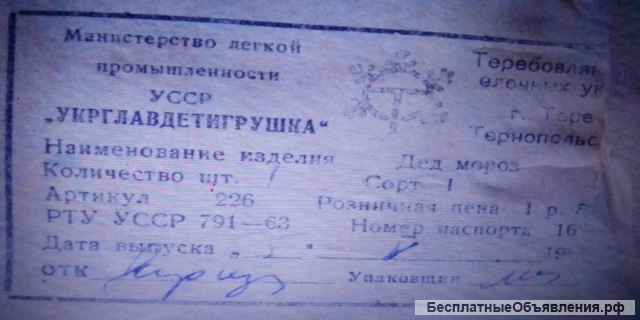 Министерство легкой
промышленности
УССР
„УКРГЛАВДЕТИГРУШКА“
Теребовлян
елочных ук
г. Тере
Тернопольс
Наименование изделия Дед мороз
Количество шт. 1 Сорт 1
Артикул 226 Розничная цена 1 р.
РТУ УССР 791—63 Номер паспорта 16
Дата выпуска „ “ 19
ОТК Упаковщик
БесплатныеОбъявления.рф